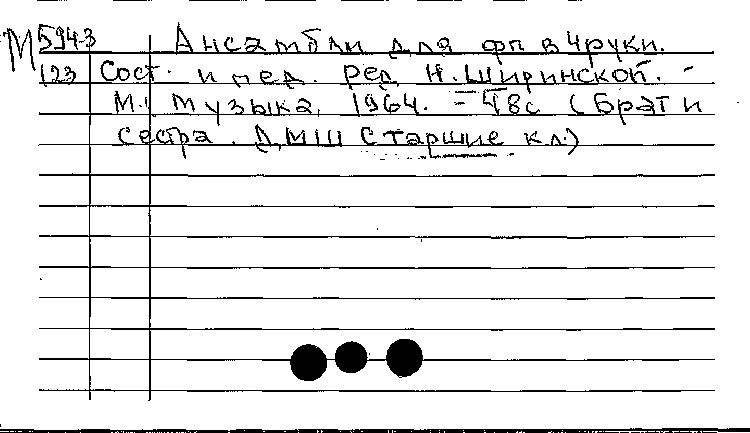 М 594-3 Ансамбли для фп в 4 руки.
123 Сост. и пед. ред. Н. Ширинской. -
М.: Музыка, 1964. - 48с (Брат и
сестра. ДМШ Старшие кл.)